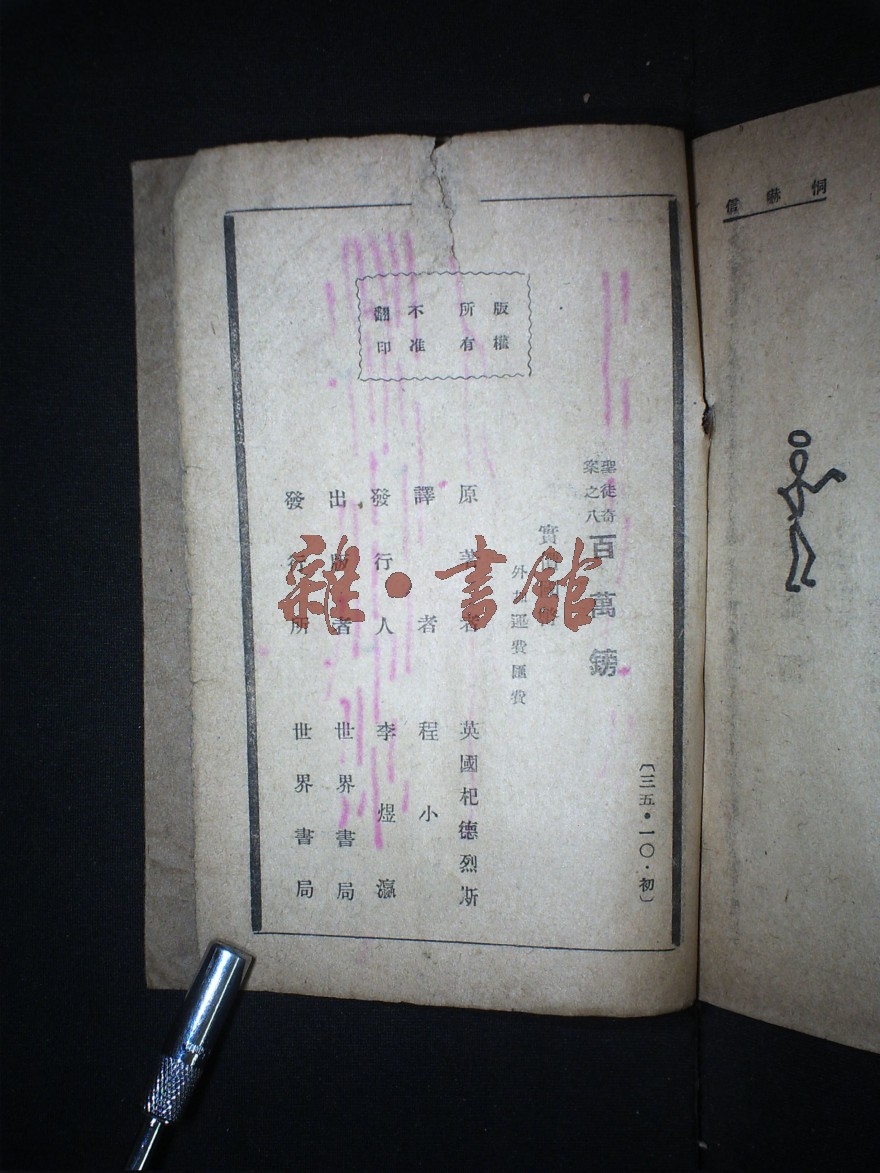 恫嚇信
〔三五•一〇•初〕
聖徒奇案之八 百萬鎊
實
外埠運費匯費
版權所有
不准翻印
原著者 英國杞德烈斯
譯者 程小
發行人 李煜瀛
出版者 世界書局
發行所 世界書局
雜•書館